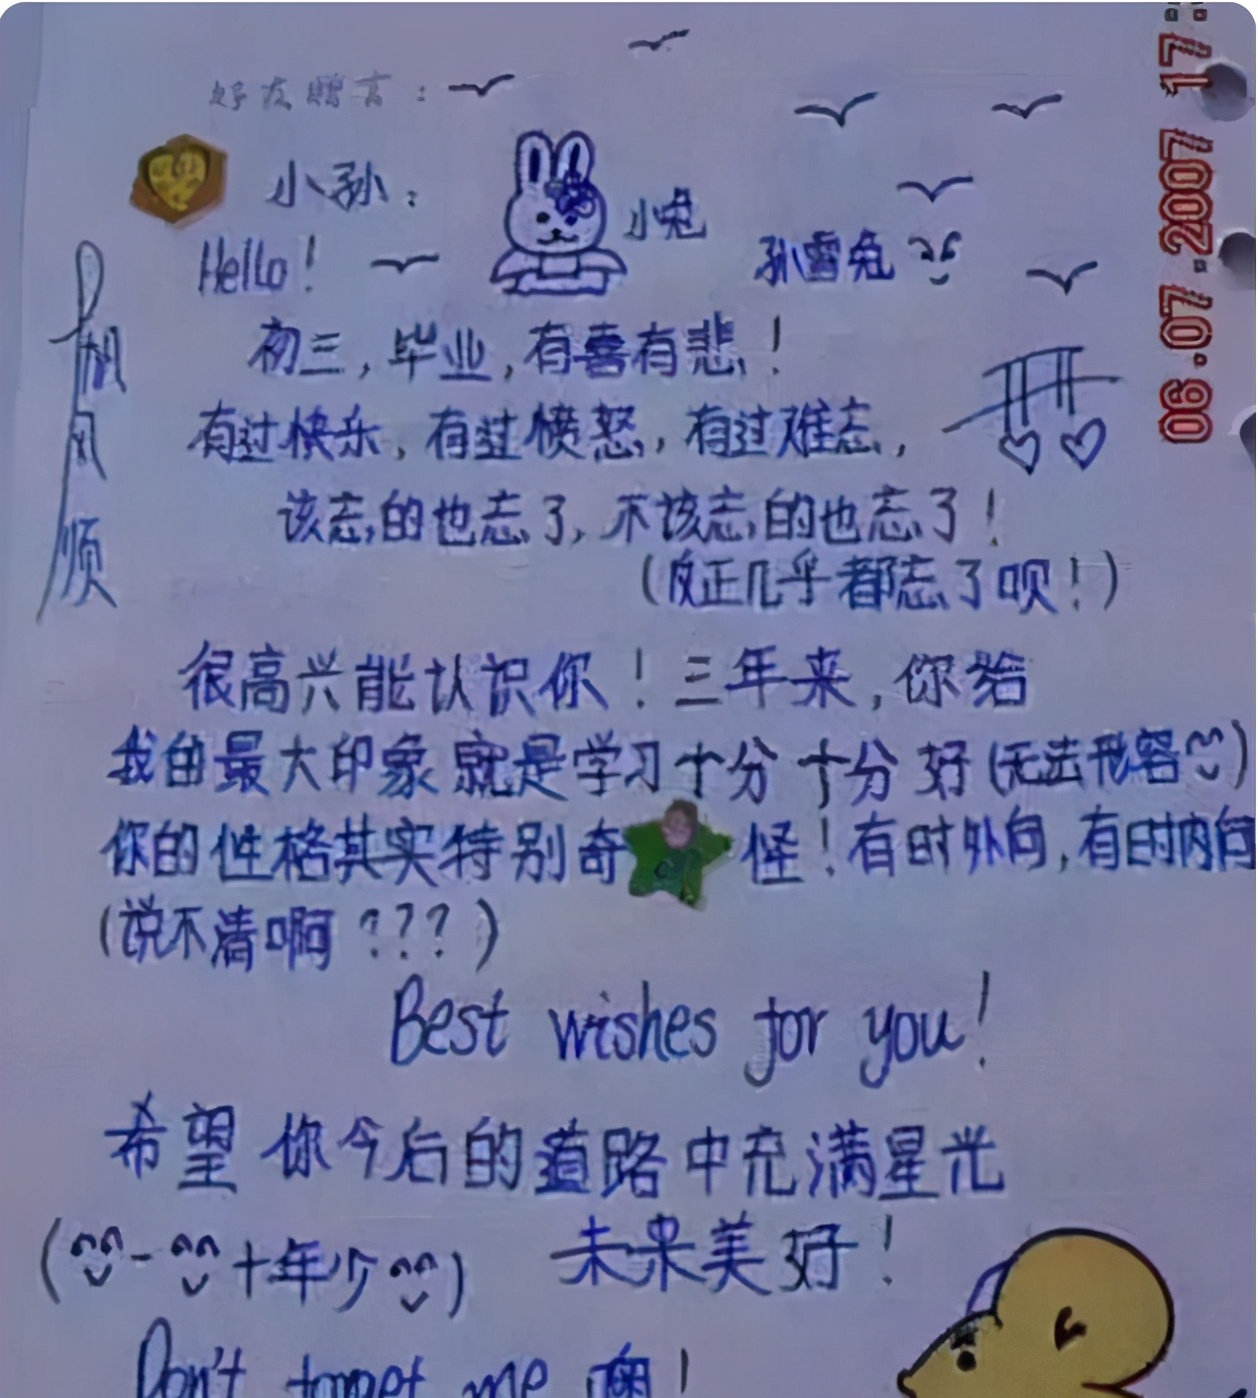 好友赠言：
小孙：
小兔
Hello！
孙雪兔
帆风顺
初三，毕业，有喜有悲！
有过快乐，有过愤怒，有过难忘，
该忘的也忘了，不该忘的也忘了！
（反正几乎都忘了呗！）
很高兴能认识你！三年来，你给
我的最大印象就是学习十分十分好（无法形容）
你的性格其实特别奇怪！有时外向，有时内向
（说不清啊？？？）
Best wishes for you！
希望你今后的道路中充满星光
（十年少）未来美好！
Don't forget me 噢！
06.07.2007 17: